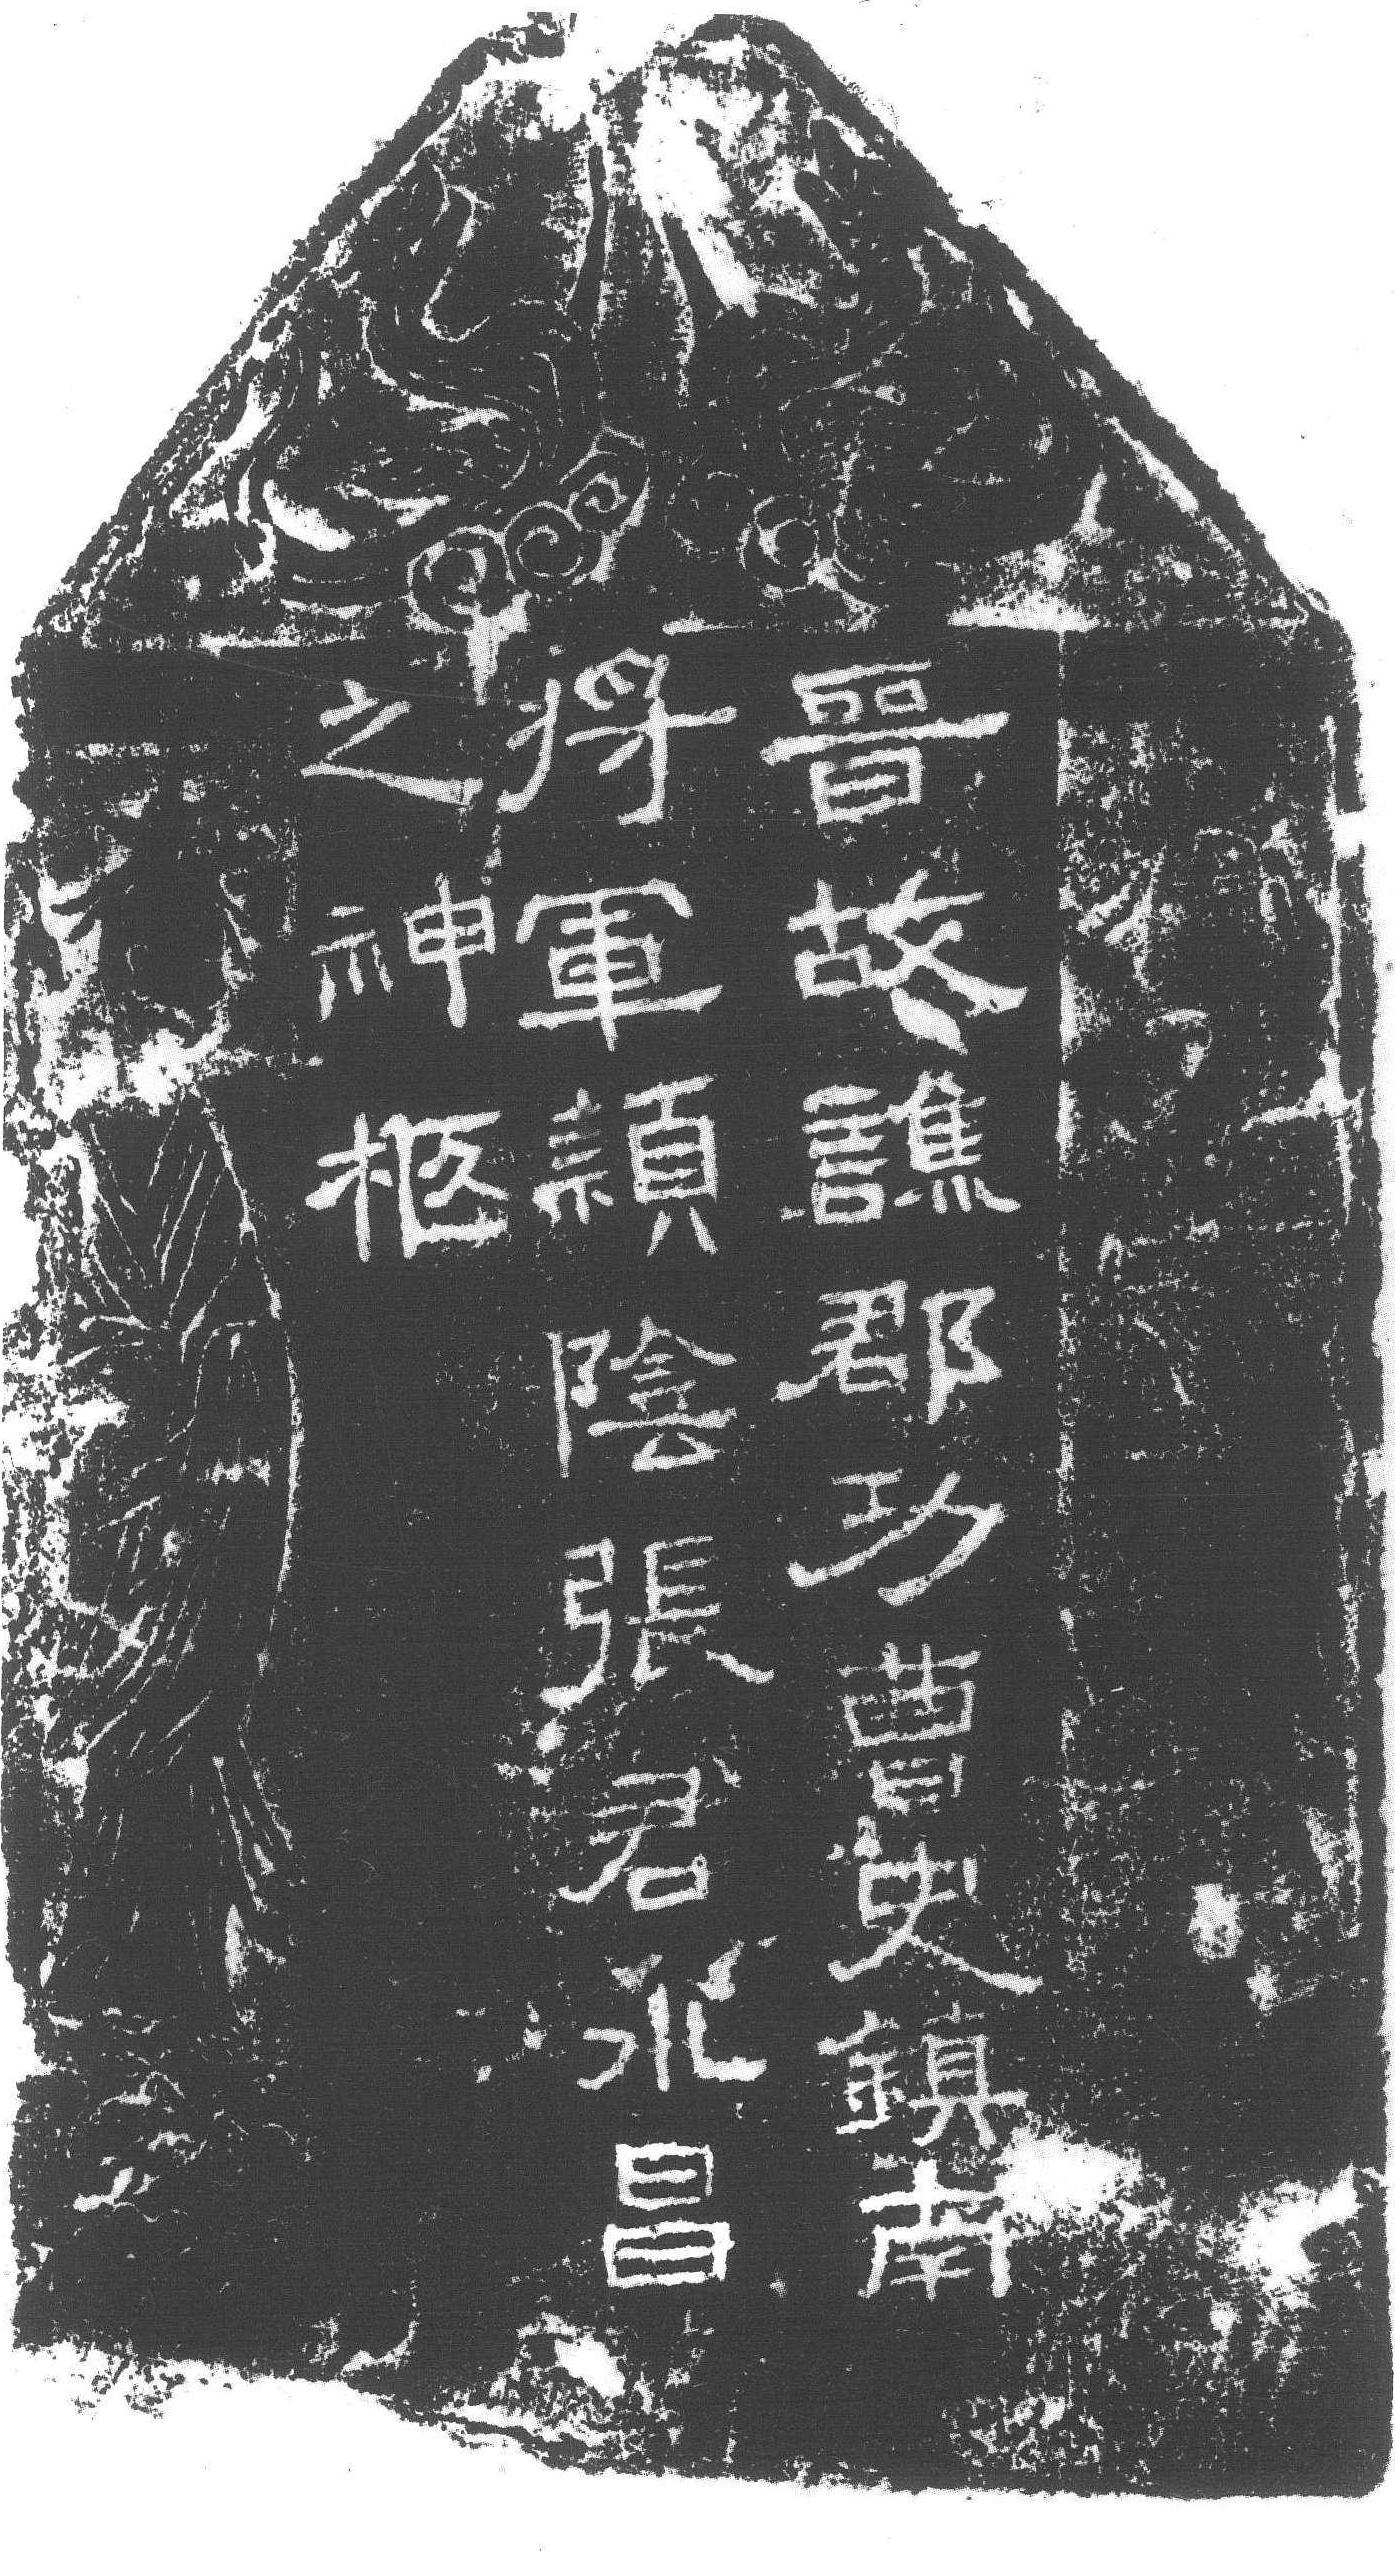 晉故譙郡功曹史鎮南
将軍潁陰張君永昌
之神柩